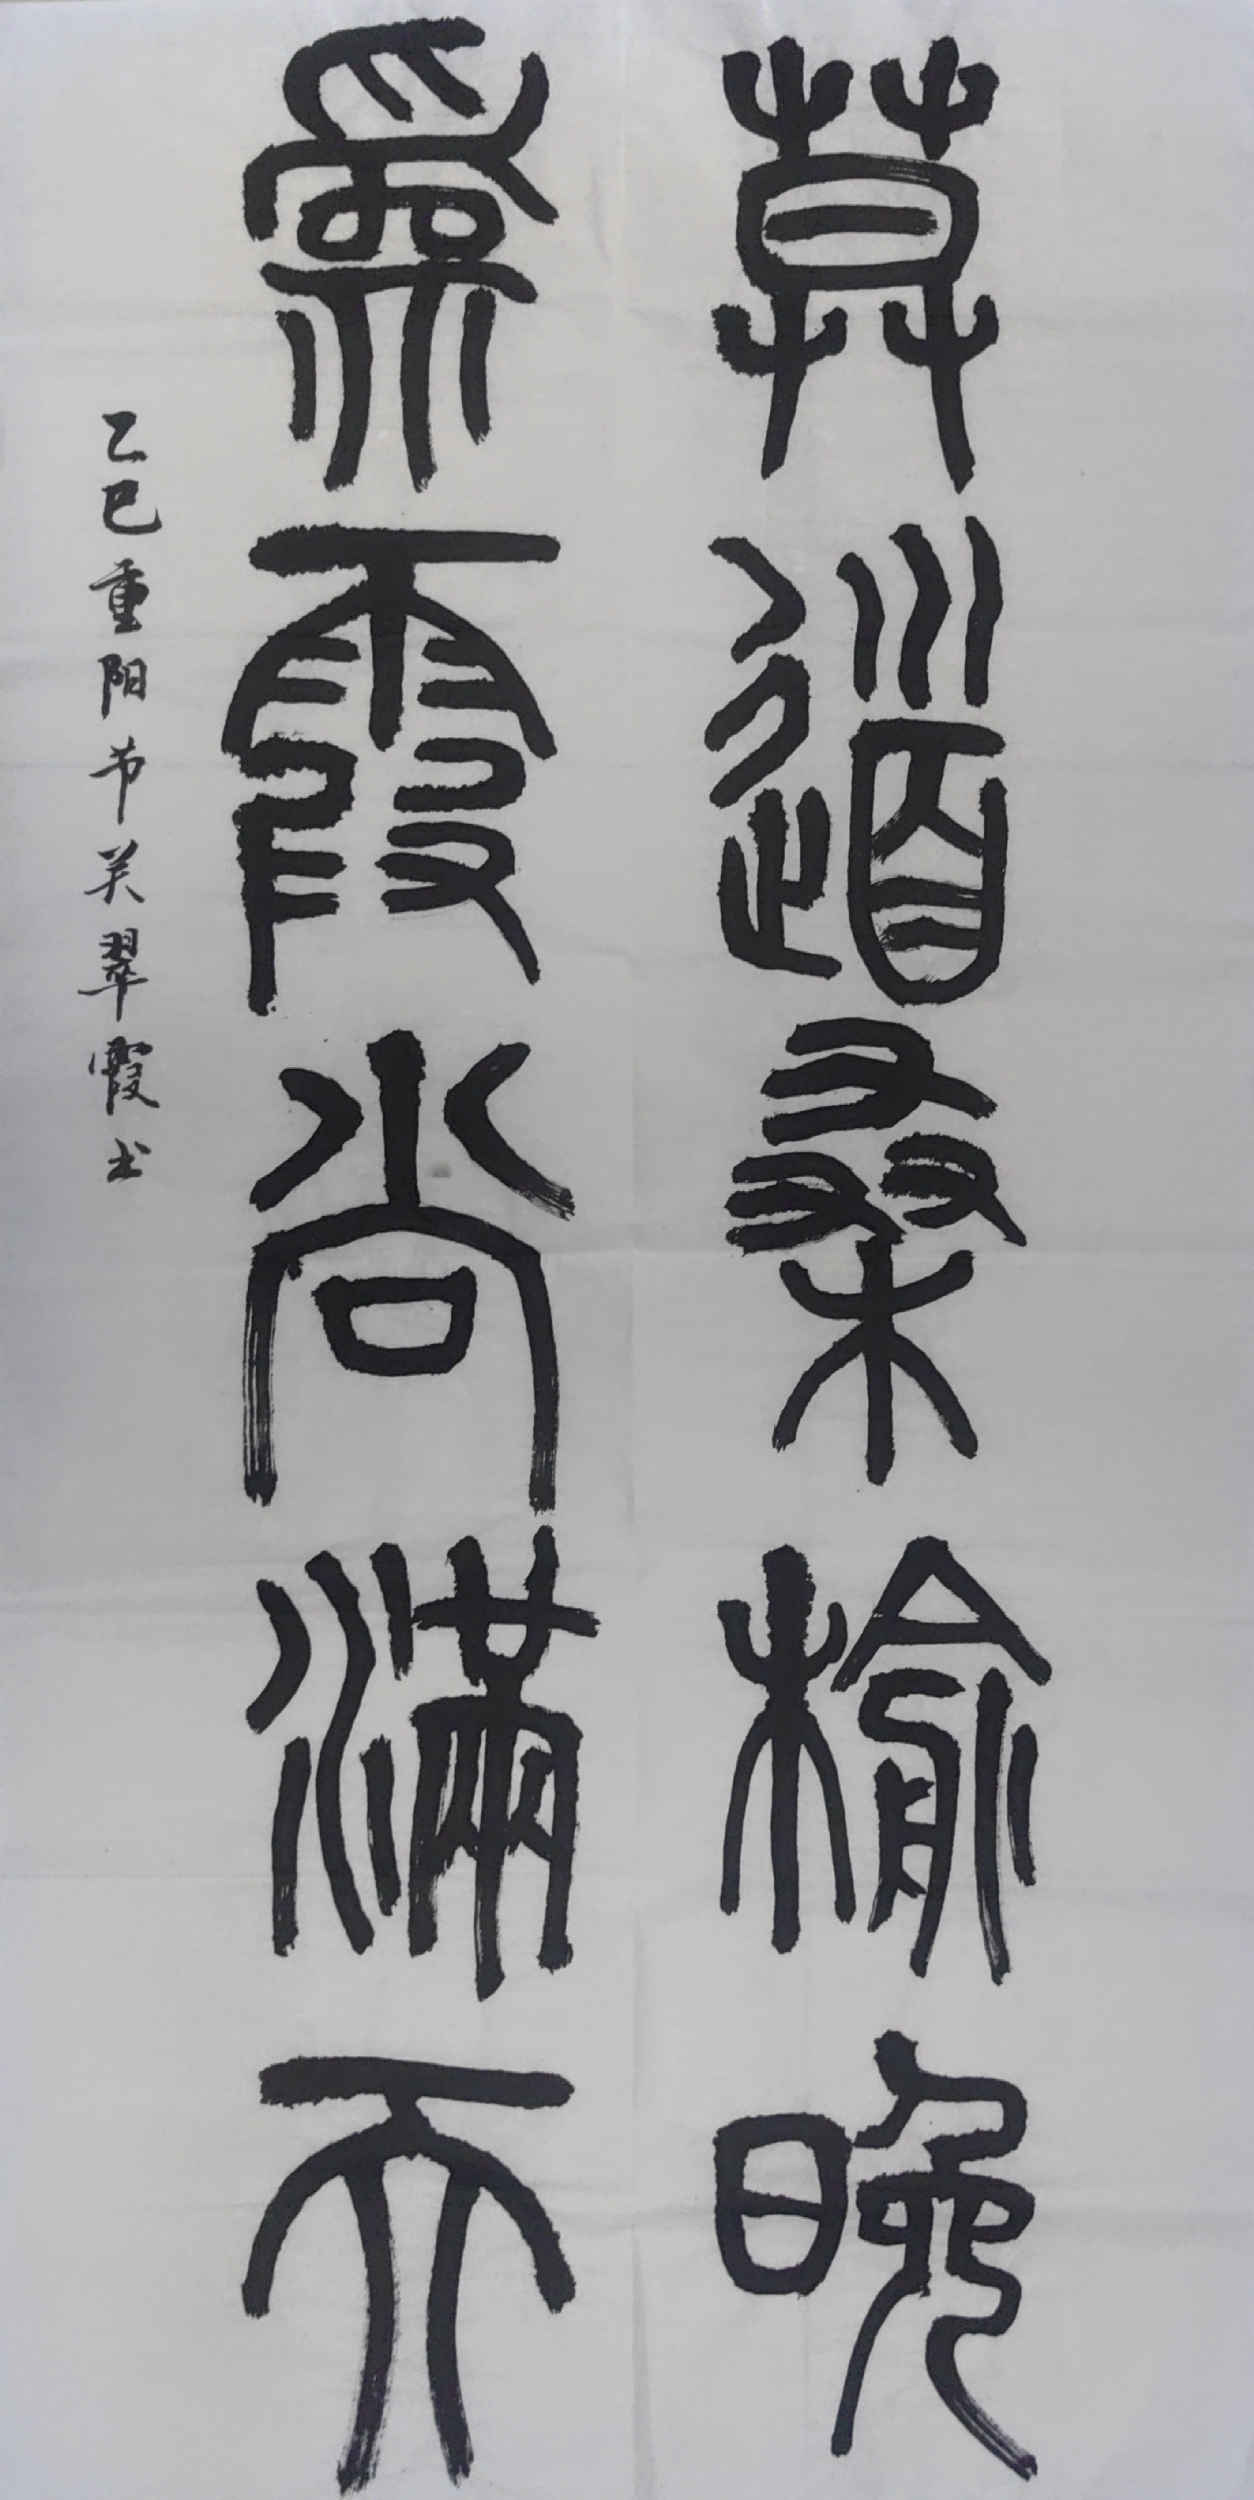 莫道桑榆晚
为霞尚满天
乙巳重阳节关翠霞书